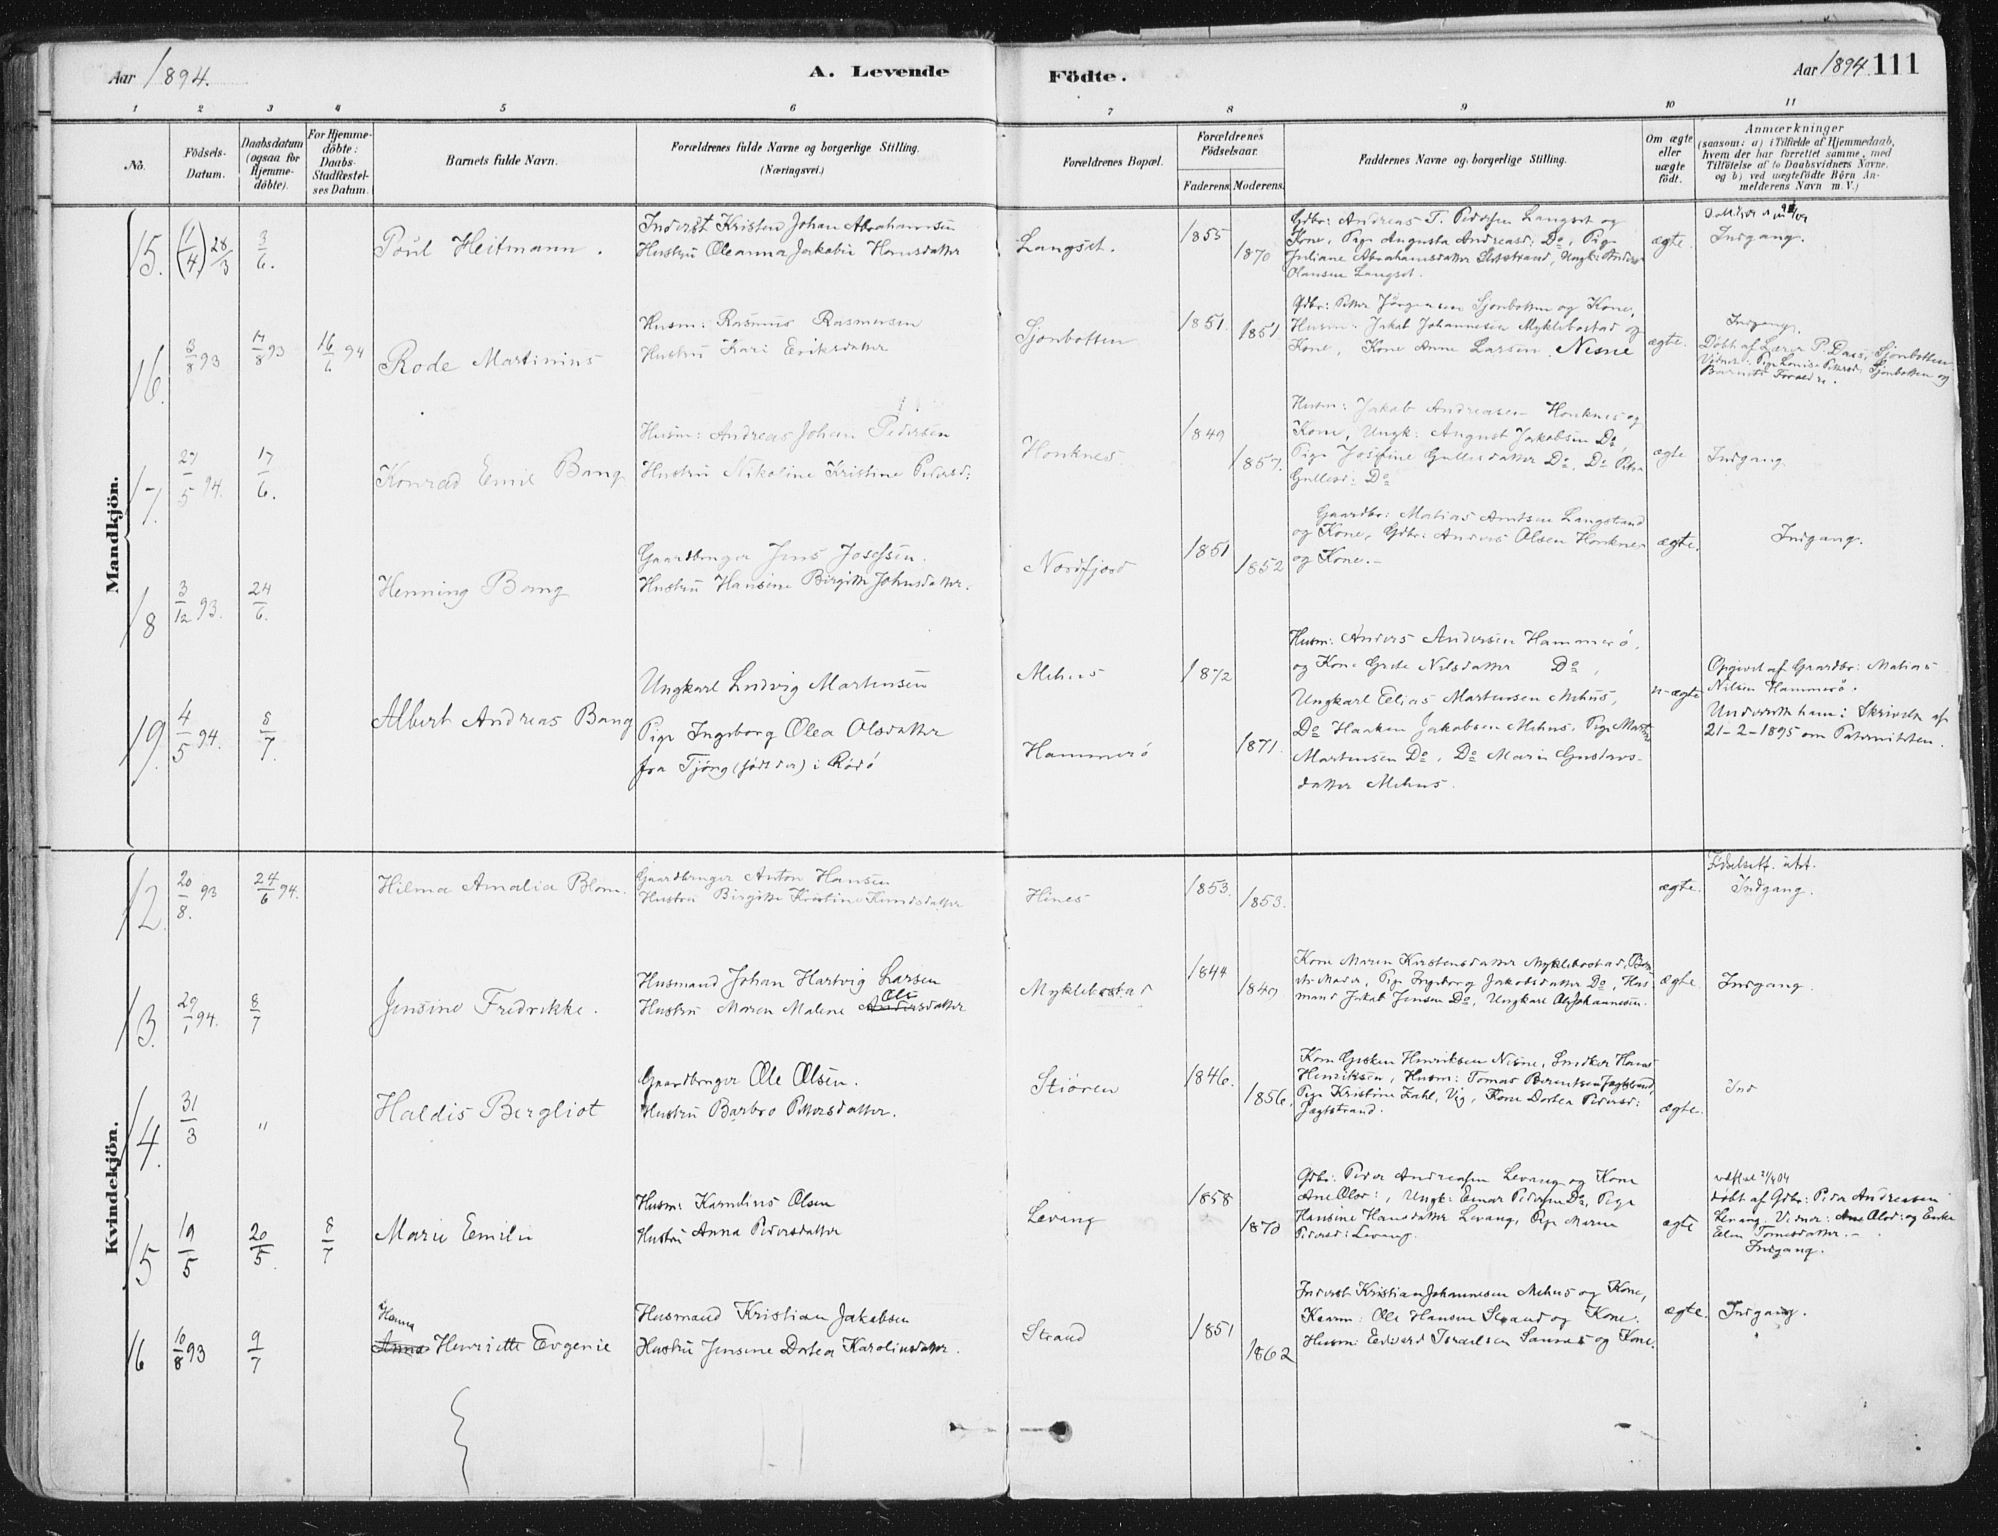 Aar 1894.
A. Levende
Födte.
Aar 1894. 111
1 2 3 4 5 6 7 8 9 10 11
No.
Födsels-
Datum.
Daabsdatum
(ogsaa for
Hjemme-
døbte).
For Hjemme-
döbte:
Daabs-
Stadfæstel-
ses Datum.
Barnets fulde Navn.
Forældrenes fulde Navne og borgerlige Stilling.
(Næringsvei.)
Forældrenes Bopæl.
Forældrenes
Födselsaar.
Faderens. Moderens.
Faddernes Navne og borgerlige Stilling.
Om ægte
eller
uægte
födt.
Anmærkninger
(saasom: a) i Tilfælde af Hjemmedaab,
hvem der har forrettet samme, med
Tilföielse af to Daabsvidners Navne,
og b) ved uægtefödte Börn An-
melderens Navn m. V.)
Mandkjön.
15. (1/4) 28/3 3/6.
Poul Heitmann.
Inderst Kristen Johan Abrahamsen
Hustru Oleanna Jakobie Hansdatter
Langset.
1855
1870
Gdbr: Andreas T. Pedersen Langset og
Kone, Pige Augusta Andreasd: Do, Pige
Juliane Abrahamsdatter, Ungk: Anders
Olausen Langset.
ægte.
Indgang.
16. 3/8 93 17/8 93 16/6 94
Rode Martinius
Husm: Rasmus Rasmussen
Hustru Kari Eriksdatter
Sjonbotten
1851.
1851.
Gdbr: Petter Jörgensen Sjonbotten og Kone,
Husm: Jakob Johannesen Myklebostad og
Kone, Kone Anne Larsen Nesne
ægte.
Indgang.
Döbt af Lærer P. Daes, Sjonbotten
Vidner: Pige Louise Pettersd, Sjonbotten og
Barnets Forældre.
17. 27/5 94. 17/6.
Konrad Emil Bang
Husm: Andreas Johan Pedersen
Hustru Nikoline Kristine Pedersd:
Honknes.
1849
1857.
Husm: Jakob Andreasen Honknes og
Kone, Ungk: August Jakobsen Do,
Pige Josefine Gullesdatter Do, Do Petra
Gullesd: Do
ægte
Indgang.
18 3/12 93. 24/6.
Henning Bang
Gaardbruger Jens Josefsen.
Hustru Hansine Birgitte Johnsdatter.
Nordfjord
1851
1852
Gaardbr: Matias Arntsen Langstrand
og Kone, Gdbr: Anders Olsen Honknes
og Kone.-
ægte.
Indgang.
19. 4/5 94. 8/7.
Albert Andreas Bang
Ungkarl Ludvig Martensen
Pige Ingeborg Olea Olsdatter
fra Tjöng (födt der) i Rödö
Mehus
Hammerö
1872
1871.
Husm: Anders Andersen Hammerö,
og Kone Grete Nilsdatter Do,
Ungkarl Elias Martensen Mehus,
Do Haaken Jakobsen Mehus, Pige Marta
Martensen Do, Do Marie Gustavs-
datter Mehus.
u-ægte
Opgivet af Gaardbr: Matias
Nilsen Hammerö.
Skrivelse af
21-2-1895 om Paterniteten.
Kvindekjön.
12. 20/8. 93 24/6 94.
Hilma Amalia Blom.
Gaardbruger Anton Hansen
Hustru Birgitte Kristine Knudsdatter
Hines
1853.
1853.
ægte.
Födselsatt. utst.
Indgang.
13. 29/1 94. 8/7
Jensine Fredrikke.
Husmand Johan Hartvig Larsen
Ols
Hustru Maren Malene Andersdatter
Myklebostad
1844
1849
Kone Maren Kirstensdatter Myklebostad, Bar-
nets Moder, Pige Ingeborg Jakobsdatter Do, Hus-
mand Jakob Jensen Do, Ungkarl Ole Johannesen.
ægte.
Indgang.
14. 31/3 "
Haldis Bergliot
Gaardbruger Ole Olsen.
Hustru Barbro Pettersdatter.
Stiören
1846.
1856.
Kone Gjoken Henriksen Nesne, Snedker Hans
Henriksen, Husm: Tomas Berentsen Jagtstrand,
Pige Kristine Zahl, Vig, Kone Dortea Pedersd:
Jagtstrand.
ægte.
Ind
15 19/5 20/5. 8/7
Marie Emilie
Husm: Kornelius Olsen
Hustru Anna Pedersdatter
Levang
1858
1870
Gdbr: Peder Andreasen Levang og Kone
Ane Olsd:, Ungk: Einar Pedersen Do, Pige
Hansine Hansdatter Levang, Pige Maren
Pedersd: Levang.
ægte
döbt af Gdbr: Peder Andreasen
Levang. Vidner: Ane Olsd: og Enke
Elen Tomesdatter.-
Indgang.
16 10/8 93 9/7
Hanna
Anna Henriette Evgenie
Husmand Kristian Jakobsen
Hustru Jensine Dortea Karoliusdatter.
Strand
1851
1862
Inderst Kristian Johannesen Mehus og Kone,
Kaarm: Ole Hansen Strand og Kone.
Husm: Edvard Israelsen Saunes og Kone.
ægte.
Indgang.